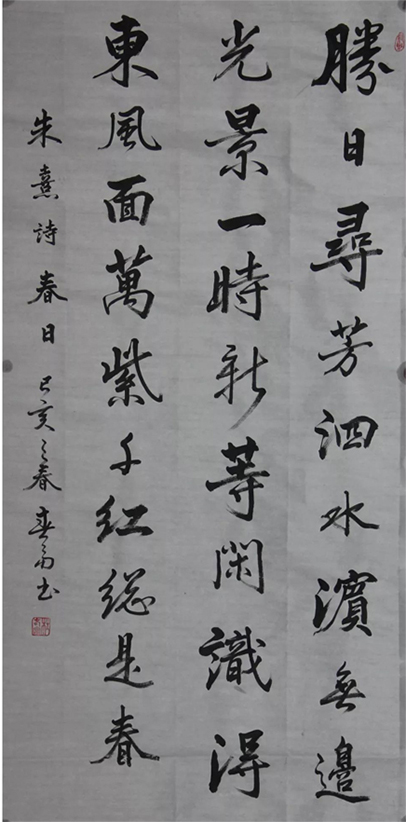 勝日尋芳泗水濱無邊
光景一時新等閑識得
東風面萬紫千紅總是春
朱熹詩春日己亥之春春雨書